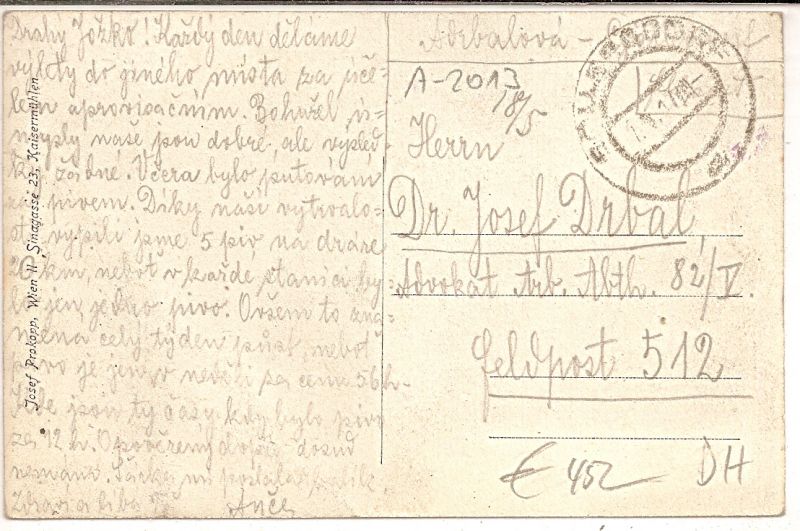 Drahý Jožko! Každý den děláme
výlety do jiného místa za úče-
lem aprovisačním. Bohužel ú-
mysly naše jsou dobré, ale výsled-
ky žádné. Včera bylo putování
za pivem. Díky naší vytrvalo-
sti vypili jsme 5 piv na dráze
20 km, neboť v každé stanici by-
lo jen jedno pivo. Ovšem to zna-
mená celý týden půst neboť
pivo je jen v neděli za cenu 56 h.
kde jsou ty časy kdy bylo pivo
za 12 h. dosud
nemám.
Zdraví a líbá
Josef Prokopp, Wien II, Sinagasse 23, Kaisermühlen
Adrbalová -
A-2013
18/5
Herrn
Dr. Josef Drbal,
Advokat Arb. Abth. 82/V.
Feldpost 512
€ 452 DH